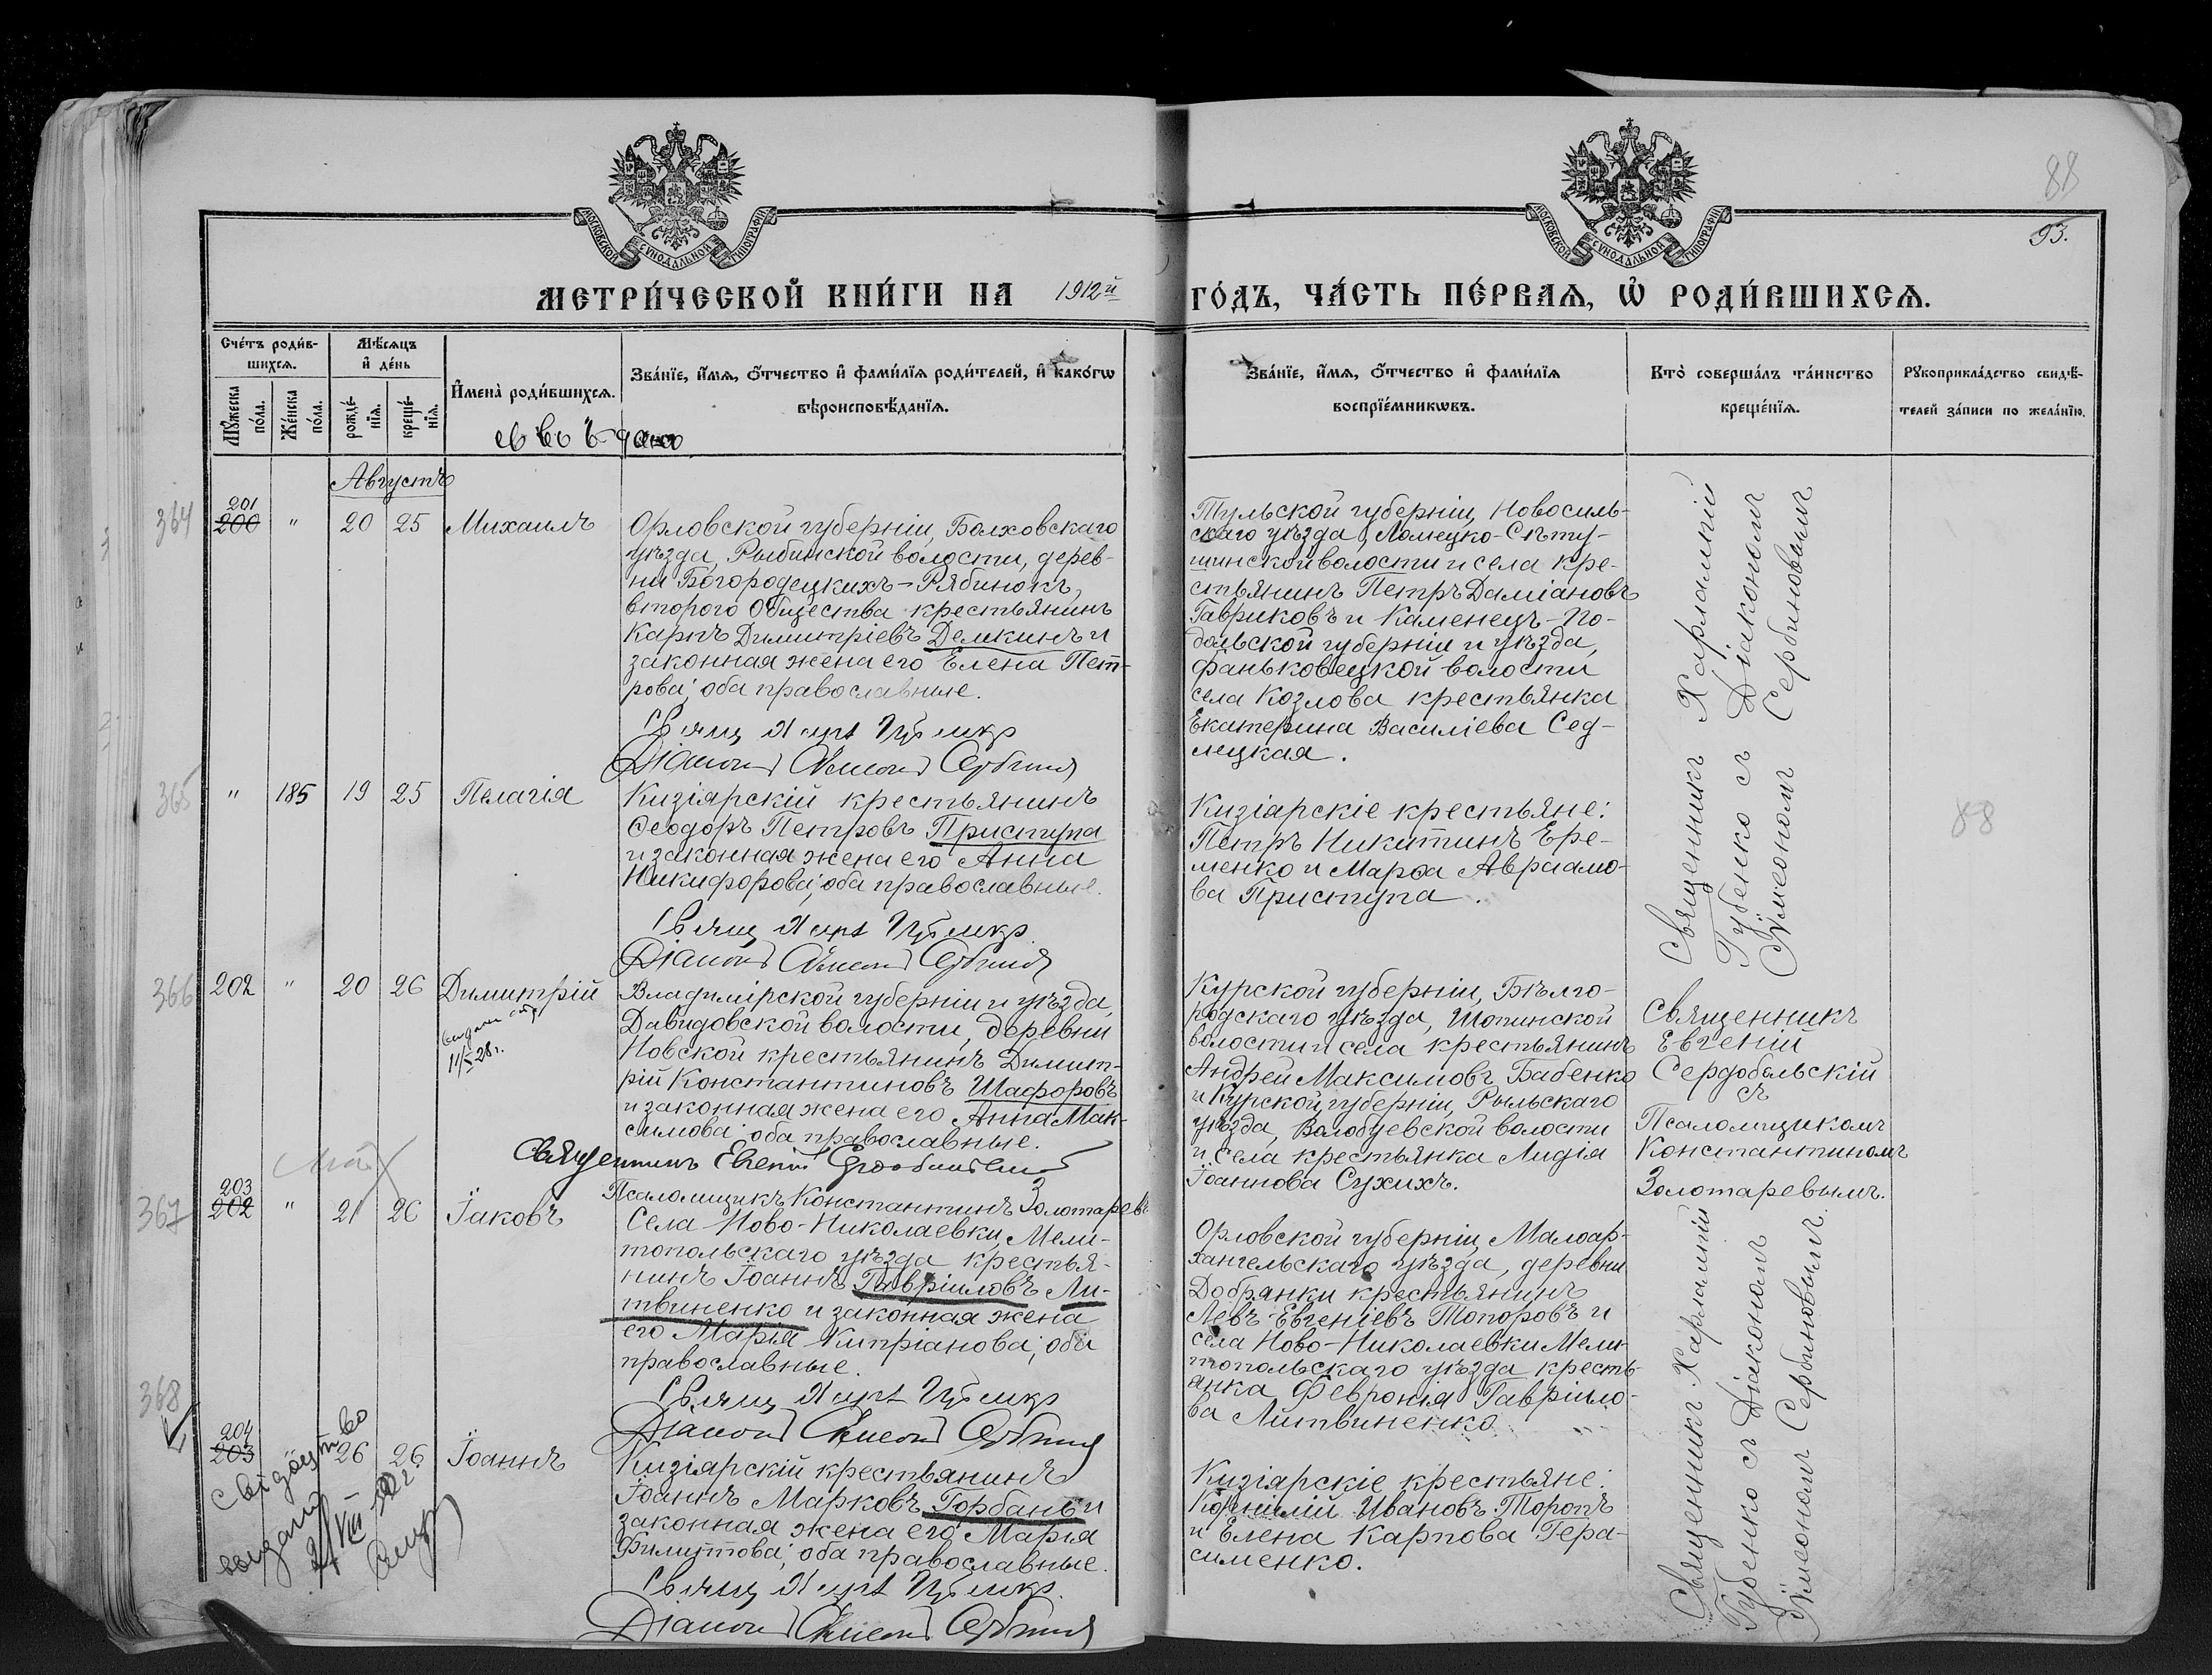 88
93.
МОСКОВСКОЙ СѴНОДАЛЬНОЙ ТИПОГРАФІИ
МОСКОВСКОЙ СѴНОДАЛЬНОЙ ТИПОГРАФІИ
МЕТРИ́ЧЕСКОЙ КНИ́ГИ НА 1912й ГО́ДЪ, ЧА́СТЬ ПЕ́РВАѦ, Ѡ҆ РОДИ́ВШИХСѦ.
Сче́тъ роди́в-
шихсѧ.
Мѣ́сѧцъ
и҆ де́нь
Мꙋ́жеска
по́ла.
Же́нска
по́ла.
рожде́-
нїѧ.
креще́-
нїѧ.
И҆мена̀ роди́вшихсѧ.
Зва́нїе, и҆́мѧ, ѻ҆́тчество и҆ фами́лїѧ роди́телей, и҆ како́гѡ
вѣроисповѣ́данїѧ.
Зва́нїе, и҆́мѧ, ѻ҆́тчество и҆ фами́лїѧ
воспрїе́мникѡвъ.
Кто̀ соверша́лъ та́инство
креще́нїѧ.
Рꙋкоприкла́дство свидѣ́-
телей за́писи по жела́нїю.
Августъ
364
201
200 " 20 25 Михаилъ
Орловской губерніи, Болховскаго
уѣзда, Рыбинской волости, дерев-
ни Богородецкихъ-Рябинокъ,
второго Общества крестьянинъ
Карпъ Димитріевъ Демкинъ и
законная жена его Елена Пет-
рова; оба православные.
Тульской губерніи, Новосиль-
скаго уѣзда, Ломецко-Сѣту-
шинской волости и села кре-
стьянинъ Петръ Даміановъ
Гавриковъ и Каменец-По-
дольской губерніи и уѣзда,
Фаньковецкой волости
села Козлова крестьянка
Екатерина Василіева Сед-
лецкая.
Священникъ Харлампій
Губенко съ Діакономъ
Сѵмеономъ Сербиновымъ
365
" 185 19 25 Пелагія
Кизіярскій крестьянинъ
Ѳеодоръ Петровъ Приступа
и законная жена его Анна
Никифорова; оба православные.
Кизіарскіе крестьяне:
Петръ Никитинъ Ере-
менко и Марѳа Авраамо-
ва Приступа.
88
366
202 " 20 26 Димитрій
Владимірской губерніи и уѣзда,
Давидовской волости, деревни
Новской крестьянинъ Димит-
рій Константиновъ Шафоровъ
и законная жена его Анна Мак-
симова; оба православные.
Священникъ Евгеній
Псаломщикъ Константинъ Золотаревъ
Курской губерніи, Бѣлго-
родскаго уѣзда, Шопинской
волости и села крестьянинъ
Андрей Максимовъ Бабенко
и Курской губерніи, Рыльскаго
уѣзда, Волобуевской волости
и села крестьянка Лидія
Іоаннова Сухихъ.
Священникъ
Евгеній
Сердобольскій
съ
Псаломщикомъ
Константиномъ
Золотаревымъ.
367
203
202 " 21 26 Іаковъ
Села Ново-Николаевки, Мели-
топольскаго уѣзда крестья-
нинъ Іоаннъ Гавріиловъ Ли-
твиненко и законная жена
его Марія Кипріанова; оба
православные.
Орловской губерніи, Малоар-
хангельскаго уѣзда, деревни
Добрянки крестьянинъ
Левъ Евгеніевъ Топоровъ и
села Ново-Николаевки Мели-
топольскаго уѣзда кресть-
янка Февронія Гавріило-
ва Литвиненко
Священникъ Харлампій
Губенко съ Діакономъ
Сѵмеономъ Сербиновымъ.
368
204
203 26 26 Іоаннъ
Кизіярскій крестьянинъ
Іоаннъ Марковъ Горбань и
законная жена его Марія
Филиппова; оба православные.
Кизіарскіе крестьяне:
Корнилій Ивановъ Торопъ
и Елена Карпова Гера-
сименко.